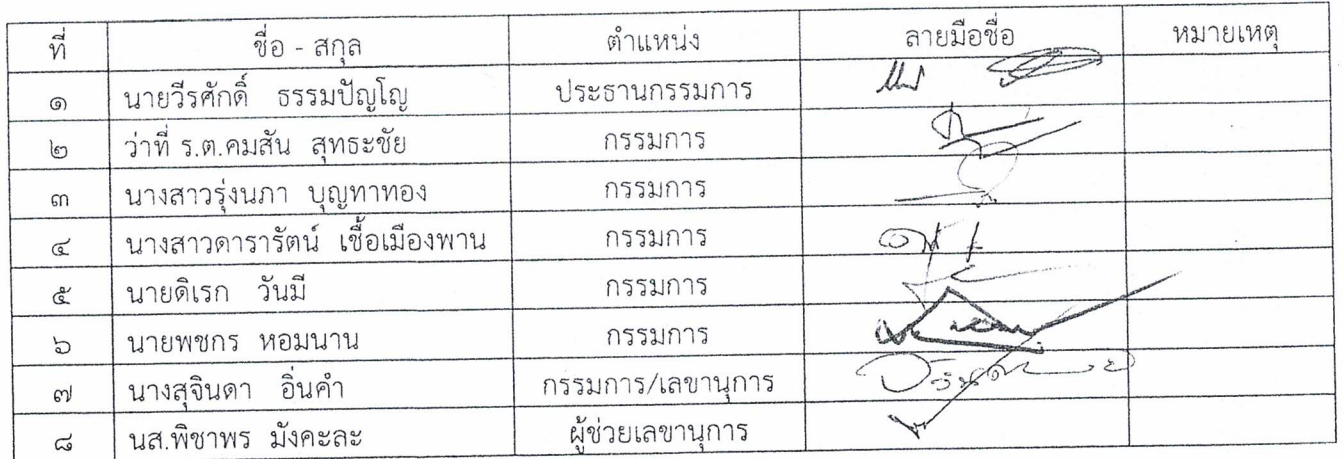 ที่ ชื่อ - สกุล ตำแหน่ง ลายมือชื่อ หมายเหตุ
๑ นายวีรศักดิ์ ธรรมปัญโญ ประธานกรรมการ
๒ ว่าที่ ร.ต.คมสัน สุทธะชัย กรรมการ
๓ นางสาวรุ่งนภา บุญทาทอง กรรมการ
๔ นางสาวดารารัตน์ เชื้อเมืองพาน กรรมการ
๕ นายดิเรก วันมี กรรมการ
๖ นายพชกร หอมนาน กรรมการ
๗ นางสุจินดา อิ่นคำ กรรมการ/เลขานุการ
๘ นส.พิชาพร มังคะละ ผู้ช่วยเลขานุการ